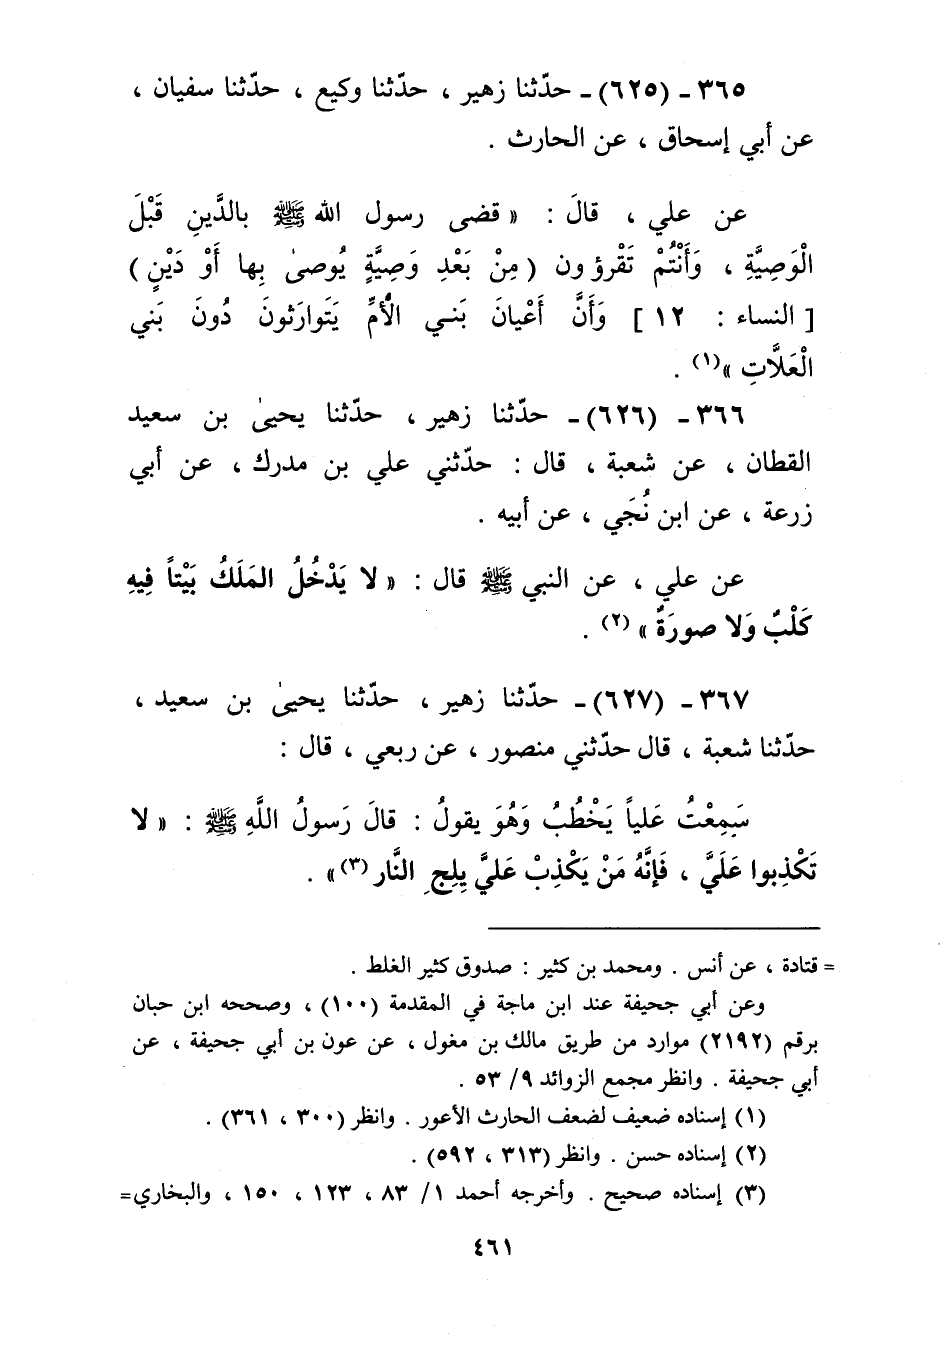 ٣٦٥ ـ (٦٢٥) ـ حدّثنا زهير ، حدّثنا وكيع ، حدّثنا سفيان ،
عن أبي إسحاق ، عن الحارث .
عن علي ، قالَ : « قضى رسول الله ﷺ بالدَّينِ قَبْلَ
الْوَصِيَّةِ ، وَأَنْتُمْ تَقْرؤون (مِنْ بَعْدِ وَصِيَّةٍ يُوصىٰ بِها أَوْ دَيْنٍ)
[النساء : ١٢] وَأَنَّ أَعْيانَ بَنـي الأُمِّ يَتَوارَثونَ دُونَ بَني
الْعَلَّاتِ »(١) .
٣٦٦ ـ (٦٢٦) ـ حدّثنا زهير ، حدّثنا يحيىٰ بن سعيد
القطان ، عن شعبة ، قال : حدّثني علي بن مدرك ، عن أبي
زرعة ، عن ابن نُجَي ، عن أبيه .
عن علي ، عن النبي ﷺ قال : « لا يَدْخُلُ المَلَكُ بَيْتاً فِيهِ
كَلْبٌ وَلا صورَةٌ » (٢) .
٣٦٧ ـ (٦٢٧) ـ حدّثنا زهير ، حدّثنا يحيىٰ بن سعيد ،
حدّثنا شعبة ، قال حدّثني منصور ، عن ربعي ، قال :
سَمِعْتُ عَلياً يَخْطُبُ وَهُوَ يقولُ : قالَ رَسولُ اللَّهِ ﷺ : « لا
تَكْذِبوا عَلَيَّ ، فَإِنَّهُ مَنْ يَكْذِبْ عَليَّ يِلِجِ النَّار (٣)» .
= قتادة ، عن أنس . ومحمد بن كثير : صدوق كثير الغلط .
وعن أبي جحيفة عند ابن ماجة في المقدمة (١٠٠) ، وصححه ابن حبان
برقم (٢١٩٢) موارد من طريق مالك بن مغول ، عن عون بن أبي جحيفة ، عن
أبي جحيفة . وانظر مجمع الزوائد ٩/ ٥٣ .
(١) إسناده ضعيف لضعف الحارث الأعور . وانظر (٣٠٠ ، ٣٦١) .
(٢) إسناده حسن . وانظر (٣١٣ ، ٥٩٢) .
(٣) إسناده صحيح . وأخرجه أحمد ١/ ٨٣ ، ١٢٣ ، ١٥٠ ، والبخاري=
٤٦١